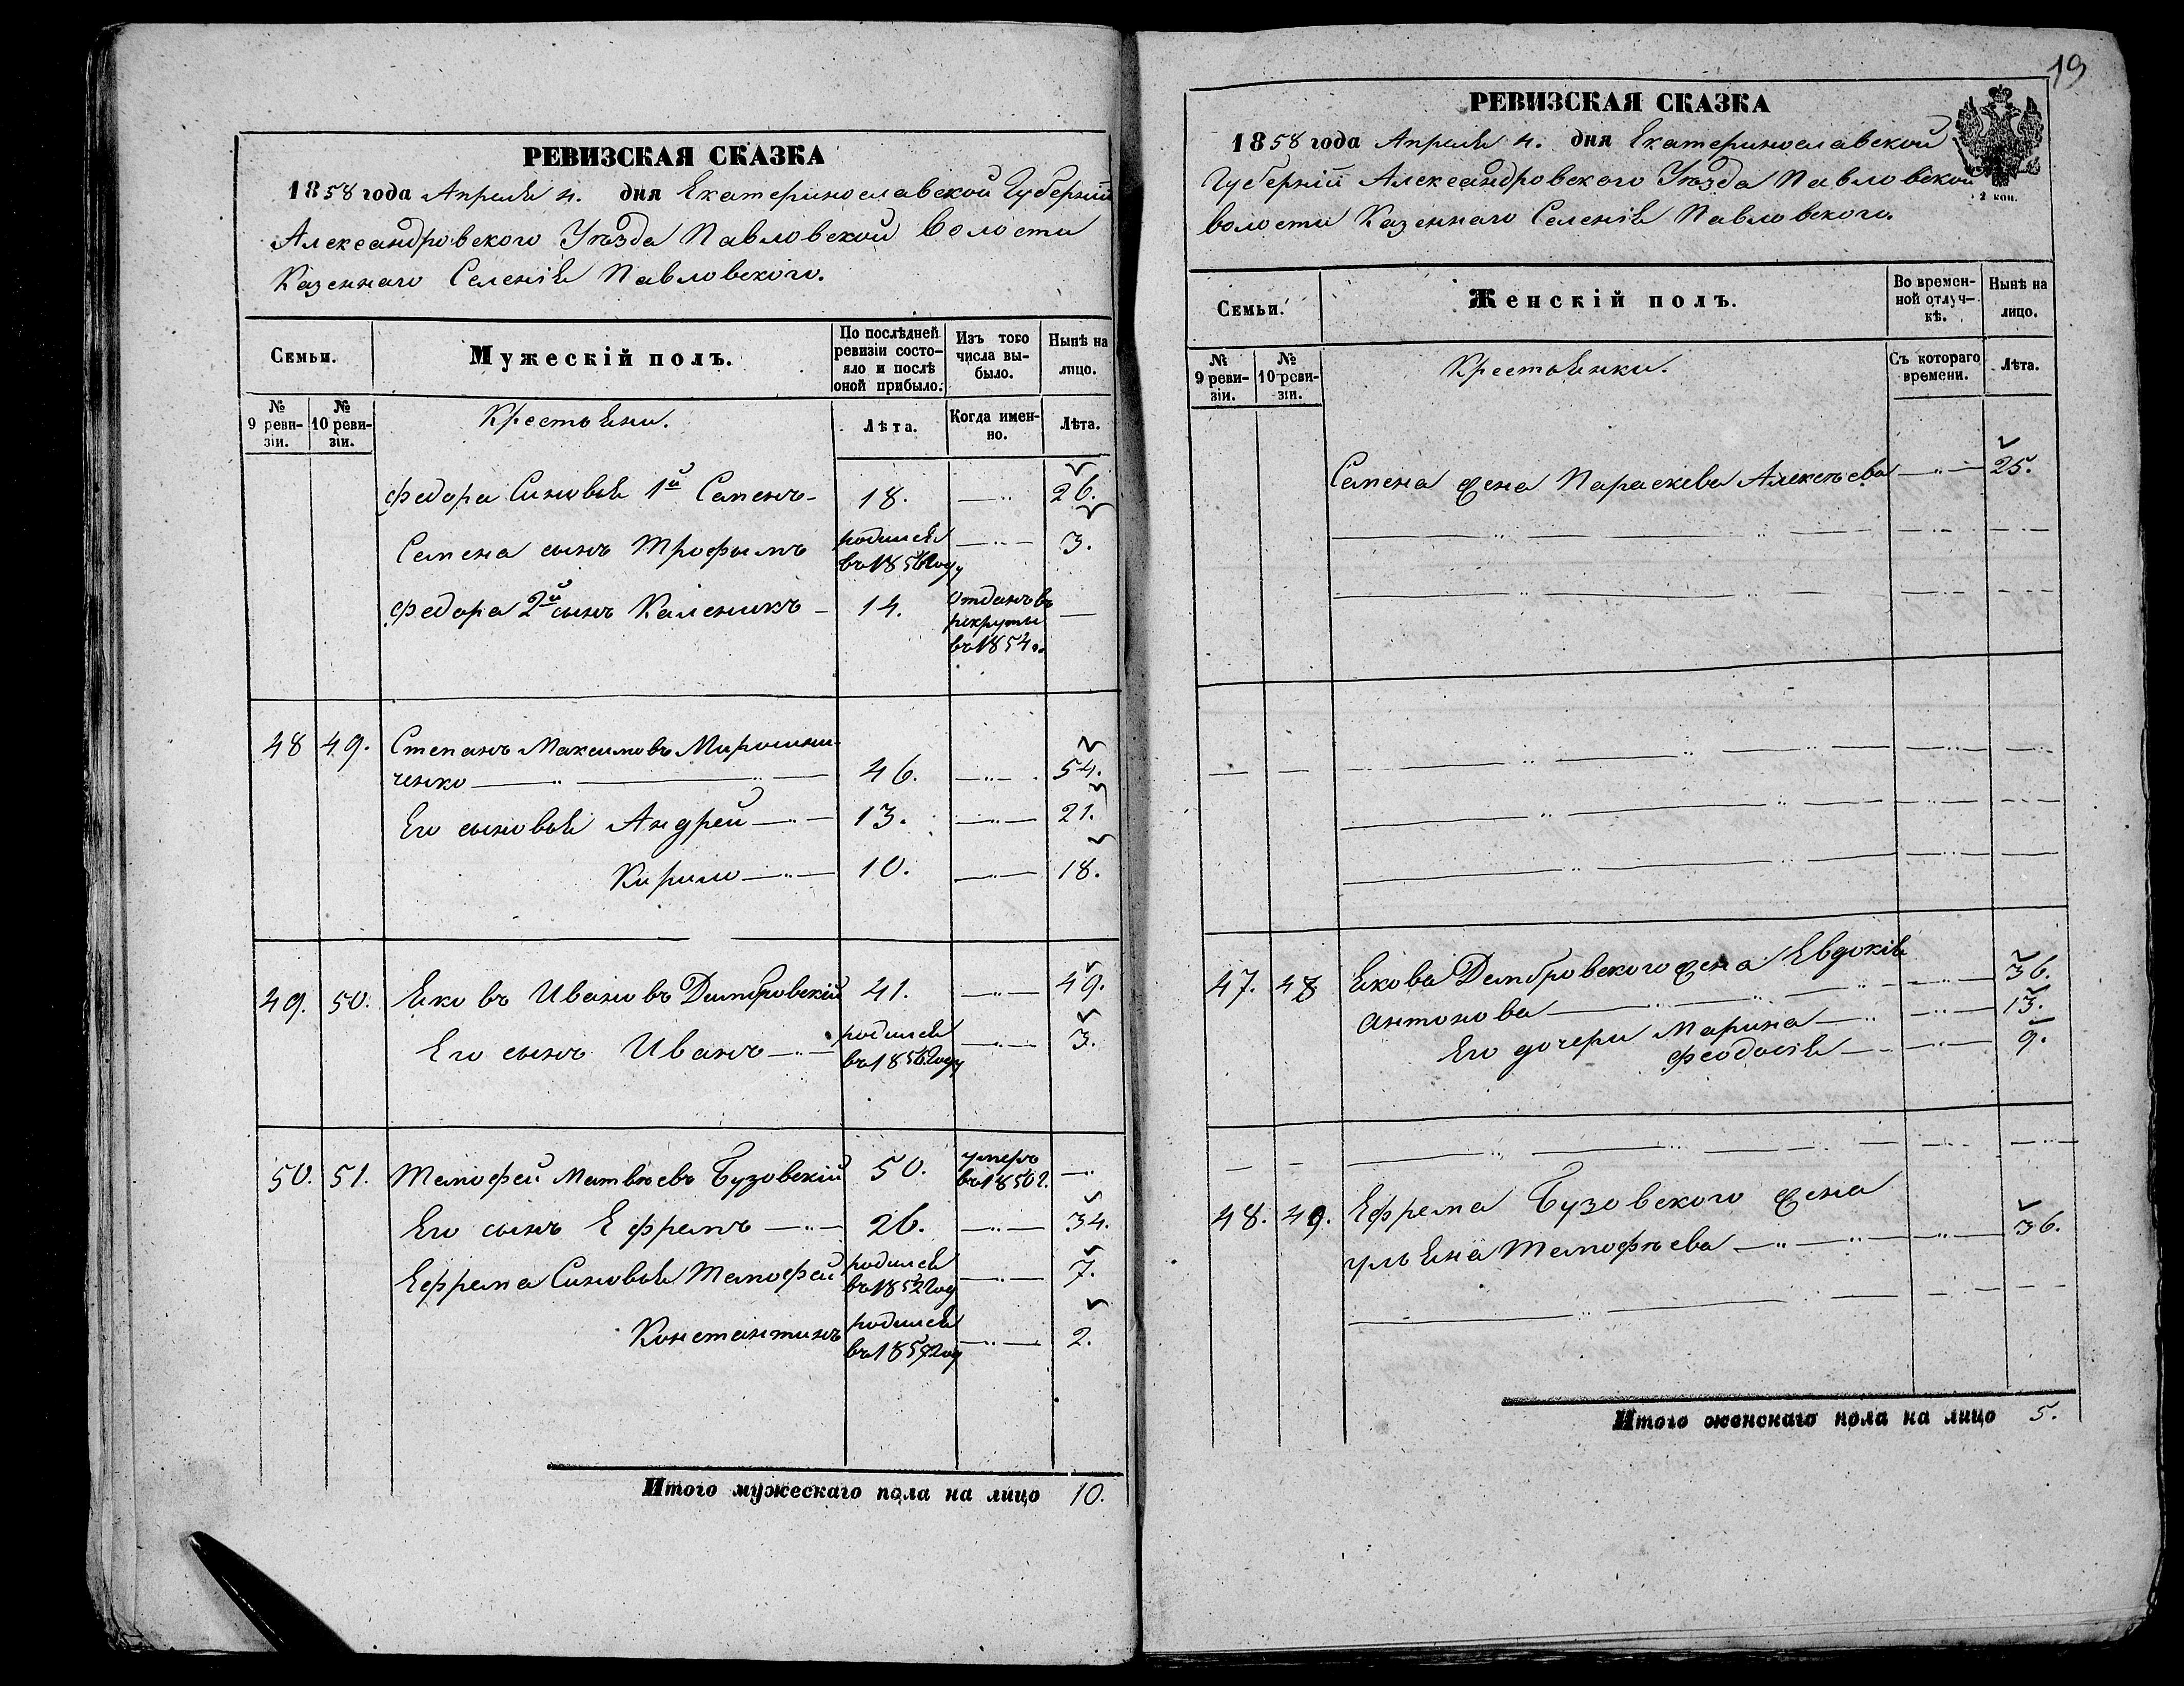 РЕВИЗСКАЯ СКАЗКА
1858 года Апреля 4. дня Екатеринославской Губернiи
Александровского Уѣзда Павловской Волости
Казеннаго Селенiя Павловского.
Семьи. Мужескiй полъ. По послѣдней ревизiи состояло и послѣ оной прибыло. Изъ того числа выбыло. Нынѣ на лицо.
№ 9 ревизiи. № 10 ревизiи. Крестьяни. Лѣта. Когда именно. Лѣта.
Федора Синовья 1й Семенъ 18. 26.
Семена сынъ Трофымъ родился въ 1856 году 3.
Федора 2й сынъ Каленикъ 14. Отданъ въ рекруты въ 1854 г.
48 49. Степанъ Максимовъ Мирошни-
ченко 46. 54.
Его сыновья Андрей 13. 21.
Кирило 10. 18.
49. 50. Яковъ Ивановъ Димбровскiй 41. 49.
Его сынъ Иванъ родился въ 1856 году 3.
50. 51. Темофей Матвѣевъ Бузовскiй 50. умеръ въ 1850 г.
Его сынъ Ефремъ 26. 34.
Ефрема Синовья Темофей родился въ 1852 год 7.
Константинъ родился въ 1857 год 2.
Итого мужескаго пола на лицо 10.
19
РЕВИЗСКАЯ СКАЗКА
1858 года Апреля 4. дня Екатеринославской
Губернiи Александровского Уѣзда Павловской
2 коп.
волости Казеннаго Селенiя Павловского.
Семьи. Женскiй полъ. Во временной отлучкѣ. Нынѣ на лицо.
№ 9 ревизiи. № 10 ревизiи. Крестьянки. Съ котораго времени. Лѣта.
Семена жена Параскева Алексѣева 25.
47. 48 Якова Дембровского жена Евдокiя
Антонова 36.
Его дочери Марина 13.
Феодосiя 9.
48. 49. Ефрема Бузовского жена
Ульяна Темофѣева 36.
Итого женскаго пола на лицо 5.